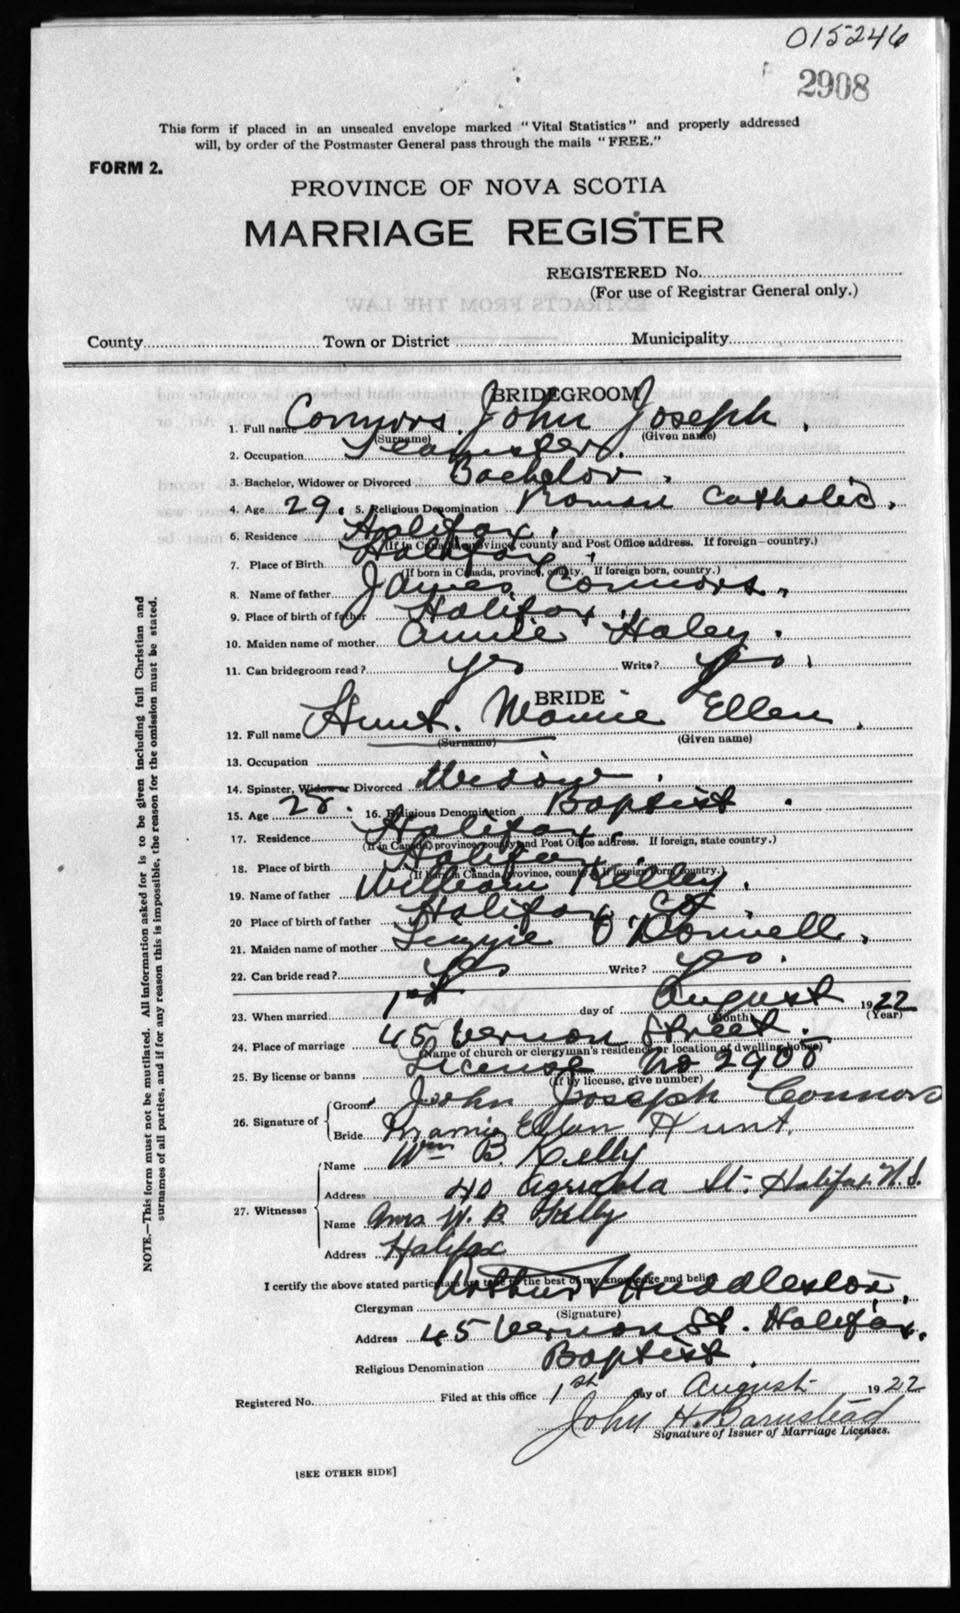 015246
2908
This form if placed in an unsealed envelope marked "Vital Statistics" and properly addressed
will, by order of the Postmaster General pass through the mails "FREE."
FORM 2.
PROVINCE OF NOVA SCOTIA
MARRIAGE REGISTER
REGISTERED No.
(For use of Registrar General only.)
EXTRACTS FROM THE LAW
County Town or District Municipality
BRIDEGROOM
1. Full name Connors. John Joseph.
(Surname) (Given name)
2. Occupation Teamster.
3. Bachelor, Widower or Divorced Bachelor.
4. Age 29. 5. Religious Denomination Roman Catholic.
6. Residence Halifax.
(If in Canada, province, county and Post Office address. If foreign—country.)
7. Place of Birth Halifax.
(If born in Canada, province, county. If foreign born, country.)
8. Name of father James Connors.
9. Place of birth of father Halifax.
10. Maiden name of mother Annie Haley.
11. Can bridegroom read? yes Write? yes.
BRIDE
12. Full name Hunt. Mamie Ellen.
(Surname) (Given name)
13. Occupation
14. Spinster, Widow or Divorced Widow.
15. Age 28. 16. Religious Denomination Baptist.
17. Residence Halifax.
(If in Canada, province, county and Post Office address. If foreign, state country.)
18. Place of birth Halifax.
(If born in Canada, province, county. If foreign born, country.)
19. Name of father William Kelley.
20 Place of birth of father Halifax. Co.
21. Maiden name of mother Lizzie O'Donnell.
22. Can bride read? yes Write? yes.
23. When married 1st day of August 1922
(Month) (Year)
24. Place of marriage 45 Vernon Street.
(Name of church or clergyman's residence or location of dwelling house)
25. By license or banns License No 2908
(If by license, give number)
26. Signature of Groom John Joseph Connors
Bride Mamie Ellen Hunt.
27. Witnesses Name Wm B. Kelly
Address 40 Agricola St. Halifax N.S.
Name Mrs W. B Kelly
Address Halifax
I certify the above stated particulars are true to the best of my knowledge and belief.
Clergyman Arthur Huddleston.
(Signature)
Address 45 Vernon St. Halifax.
Religious Denomination Baptist.
Registered No. Filed at this office 1st day of August 1922
John H. Barnstead
Signature of Issuer of Marriage Licenses.
[SEE OTHER SIDE]
NOTE.—This form must not be mutilated. All information asked for is to be given including full Christian and
surnames of all parties, and if for any reason this is impossible, the reason for the omission must be stated.